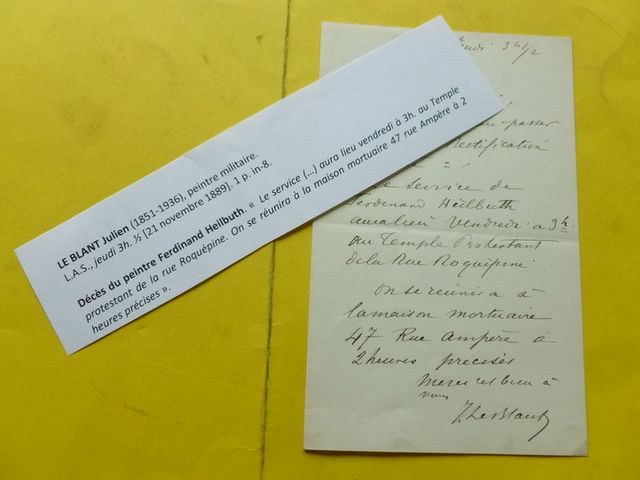 LE BLANT Julien (1851-1936), peintre militaire.
L.A.S., jeudi 3h. ½ [21 novembre 1889]. 1 p. in-8.
Décès du peintre Ferdinand Heilbuth. « Le service (...) aura lieu vendredi à 3h. au Temple
protestant de la rue Roquépine. On se réunira à la maison mortuaire 47 rue Ampère à 2
heures précises ».
3h 1/2
passer
rectification
Le service de
Ferdinand Heilbuth
aura lieu Vendredi a 3h
au Temple Protestant
de la Rue Roquépine
On se reunira à
la maison mortuaire
47 Rue Ampère à
2 heures precises
Merci et bien à
vous
J. Le Blant